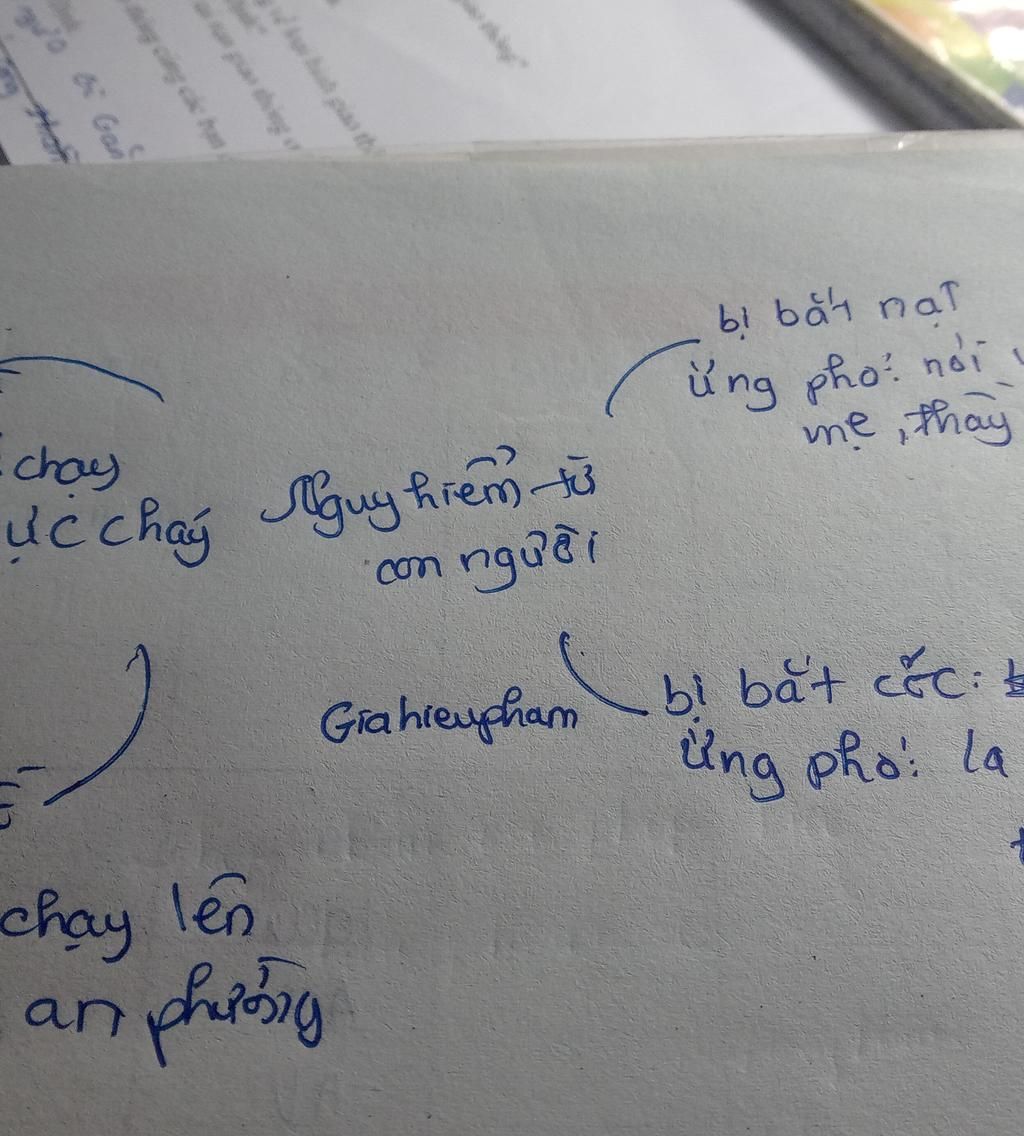 giao thông"
bị bắt nạt
ứng phó: nói
mẹ, thầy
chạy
ực cháy
Nguy hiểm từ
con người
Giahieupham
bị bắt cóc:
ứng phó: la
chạy lên
an phường